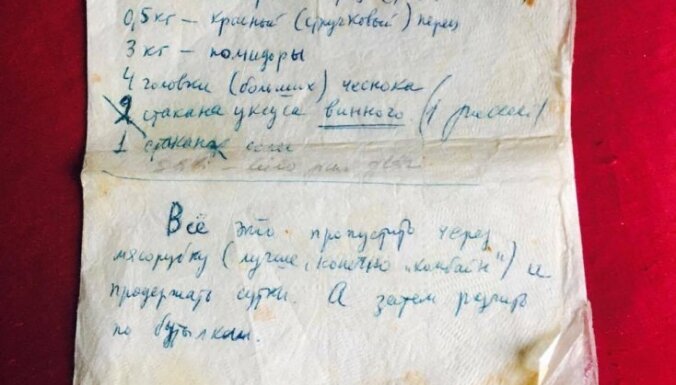 0,5 кг – красный (стручковый) перец
3 кг – помидоры
4 головки (больших) чеснока
2 стакана уксуса винного (1
1 стакан соли
Всё это пропустить через
мясорубку (лучше, конечно „комбайн“) и
продержать сутки. А затем разлить
по бутылкам.